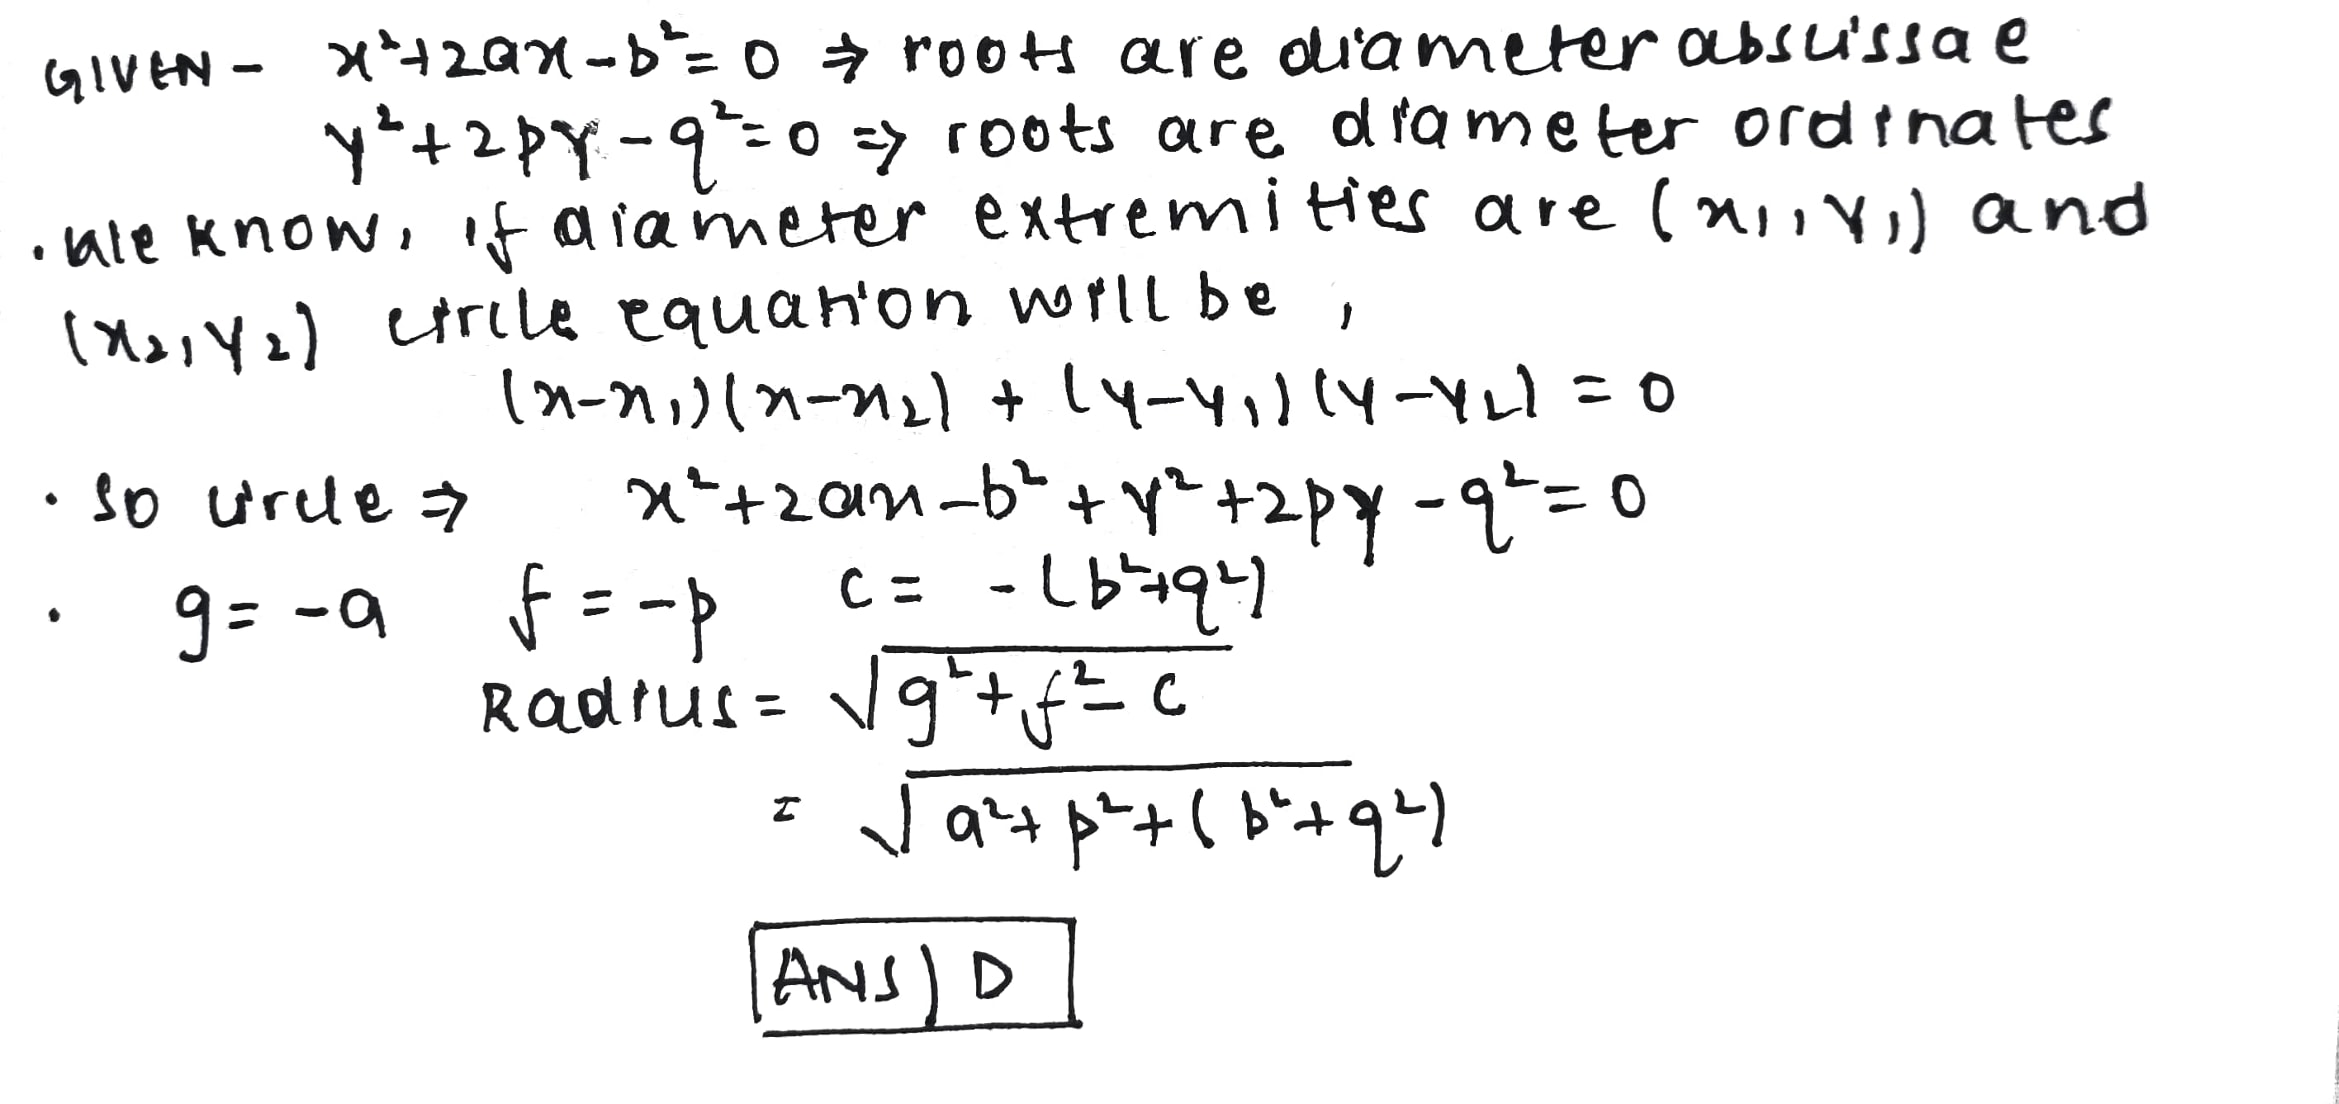 GIVEN - x²+2ax-b²=0 ⇒ roots are diameter abscissae
y²+2py-q²=0 ⇒ roots are diameter ordinates
. We know, if diameter extremities are (x₁,y₁) and
(x₂,y₂) circle equation will be,
(x-x₁)(x-x₂) + (y-y₁)(y-y₂) = 0
. So circle ⇒ x²+2ax-b²+y²+2py-q²=0
. g=-a f=-p c= -(b²+q²)
Radius= √g²+f²-c
= √a²+p²+(b²+q²)
ANS) D